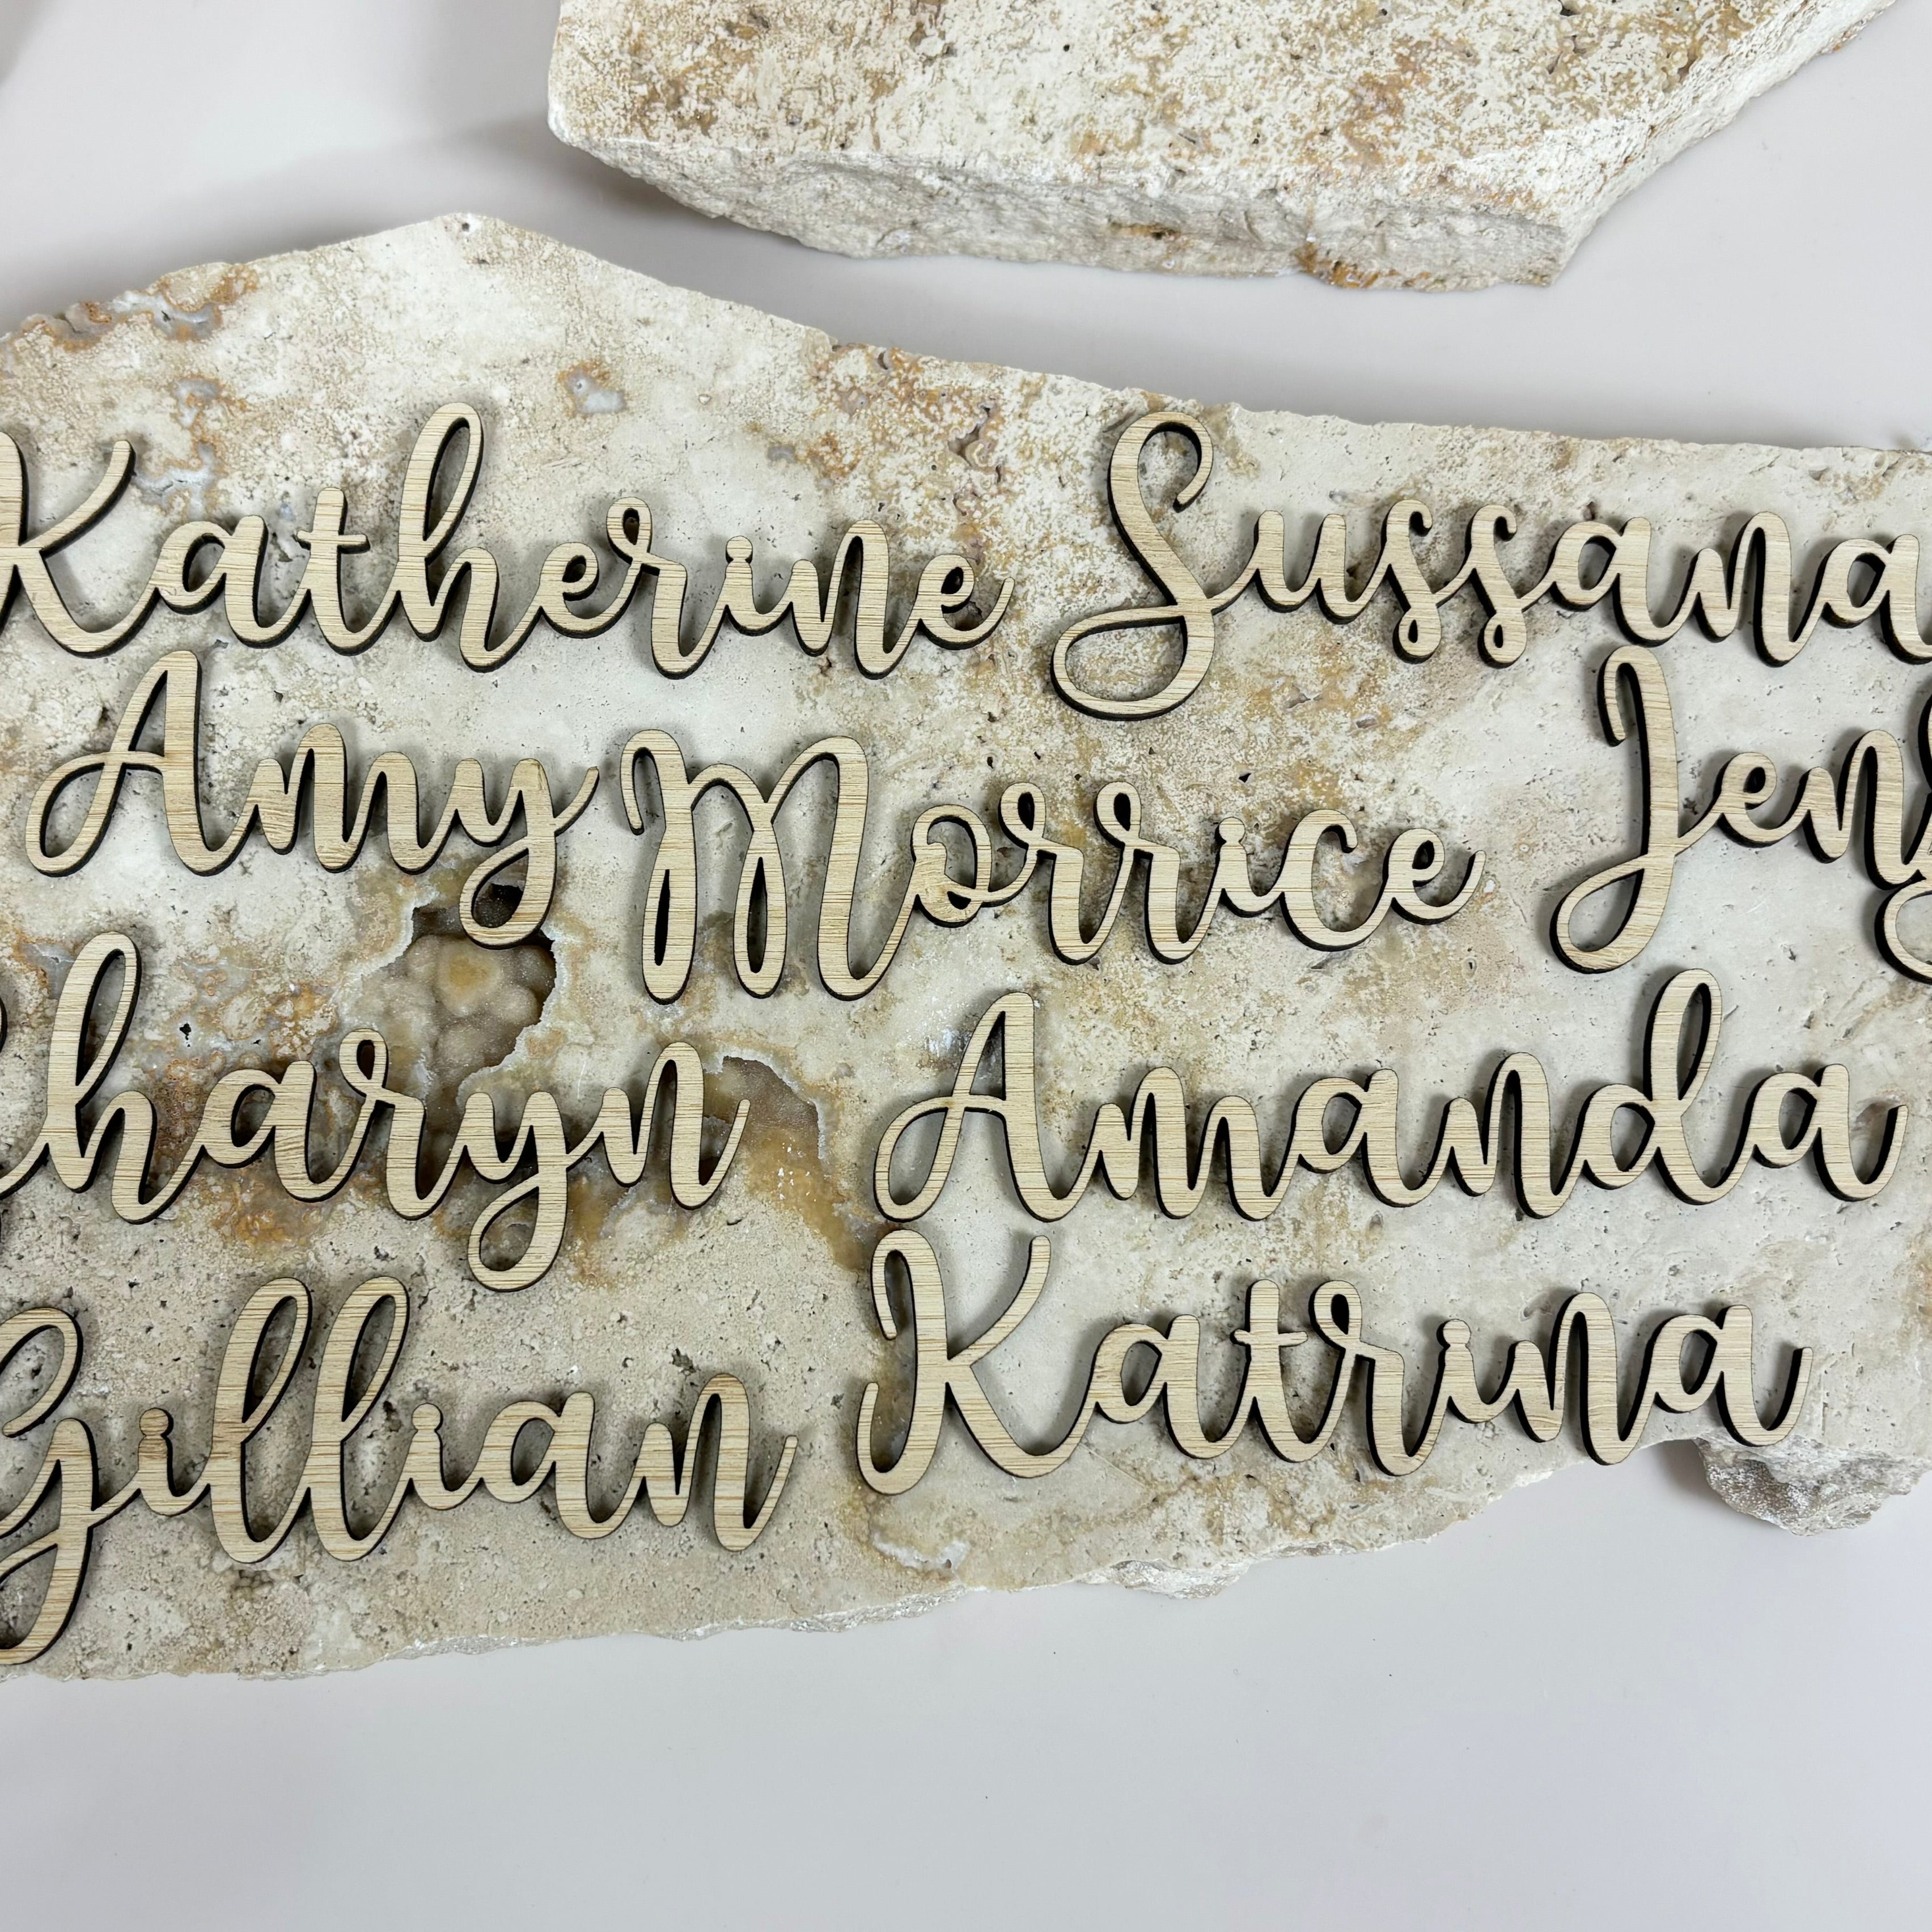 Katherine Sussana
Amy Morrice
haryn Amanda
Gillian Katrina